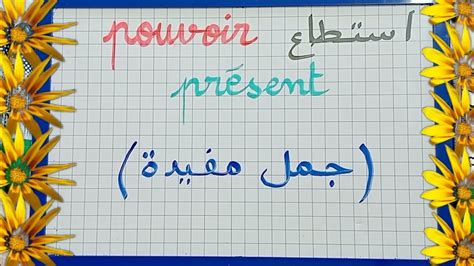 pouvoir استطاع
présent
(جمل مفيدة)